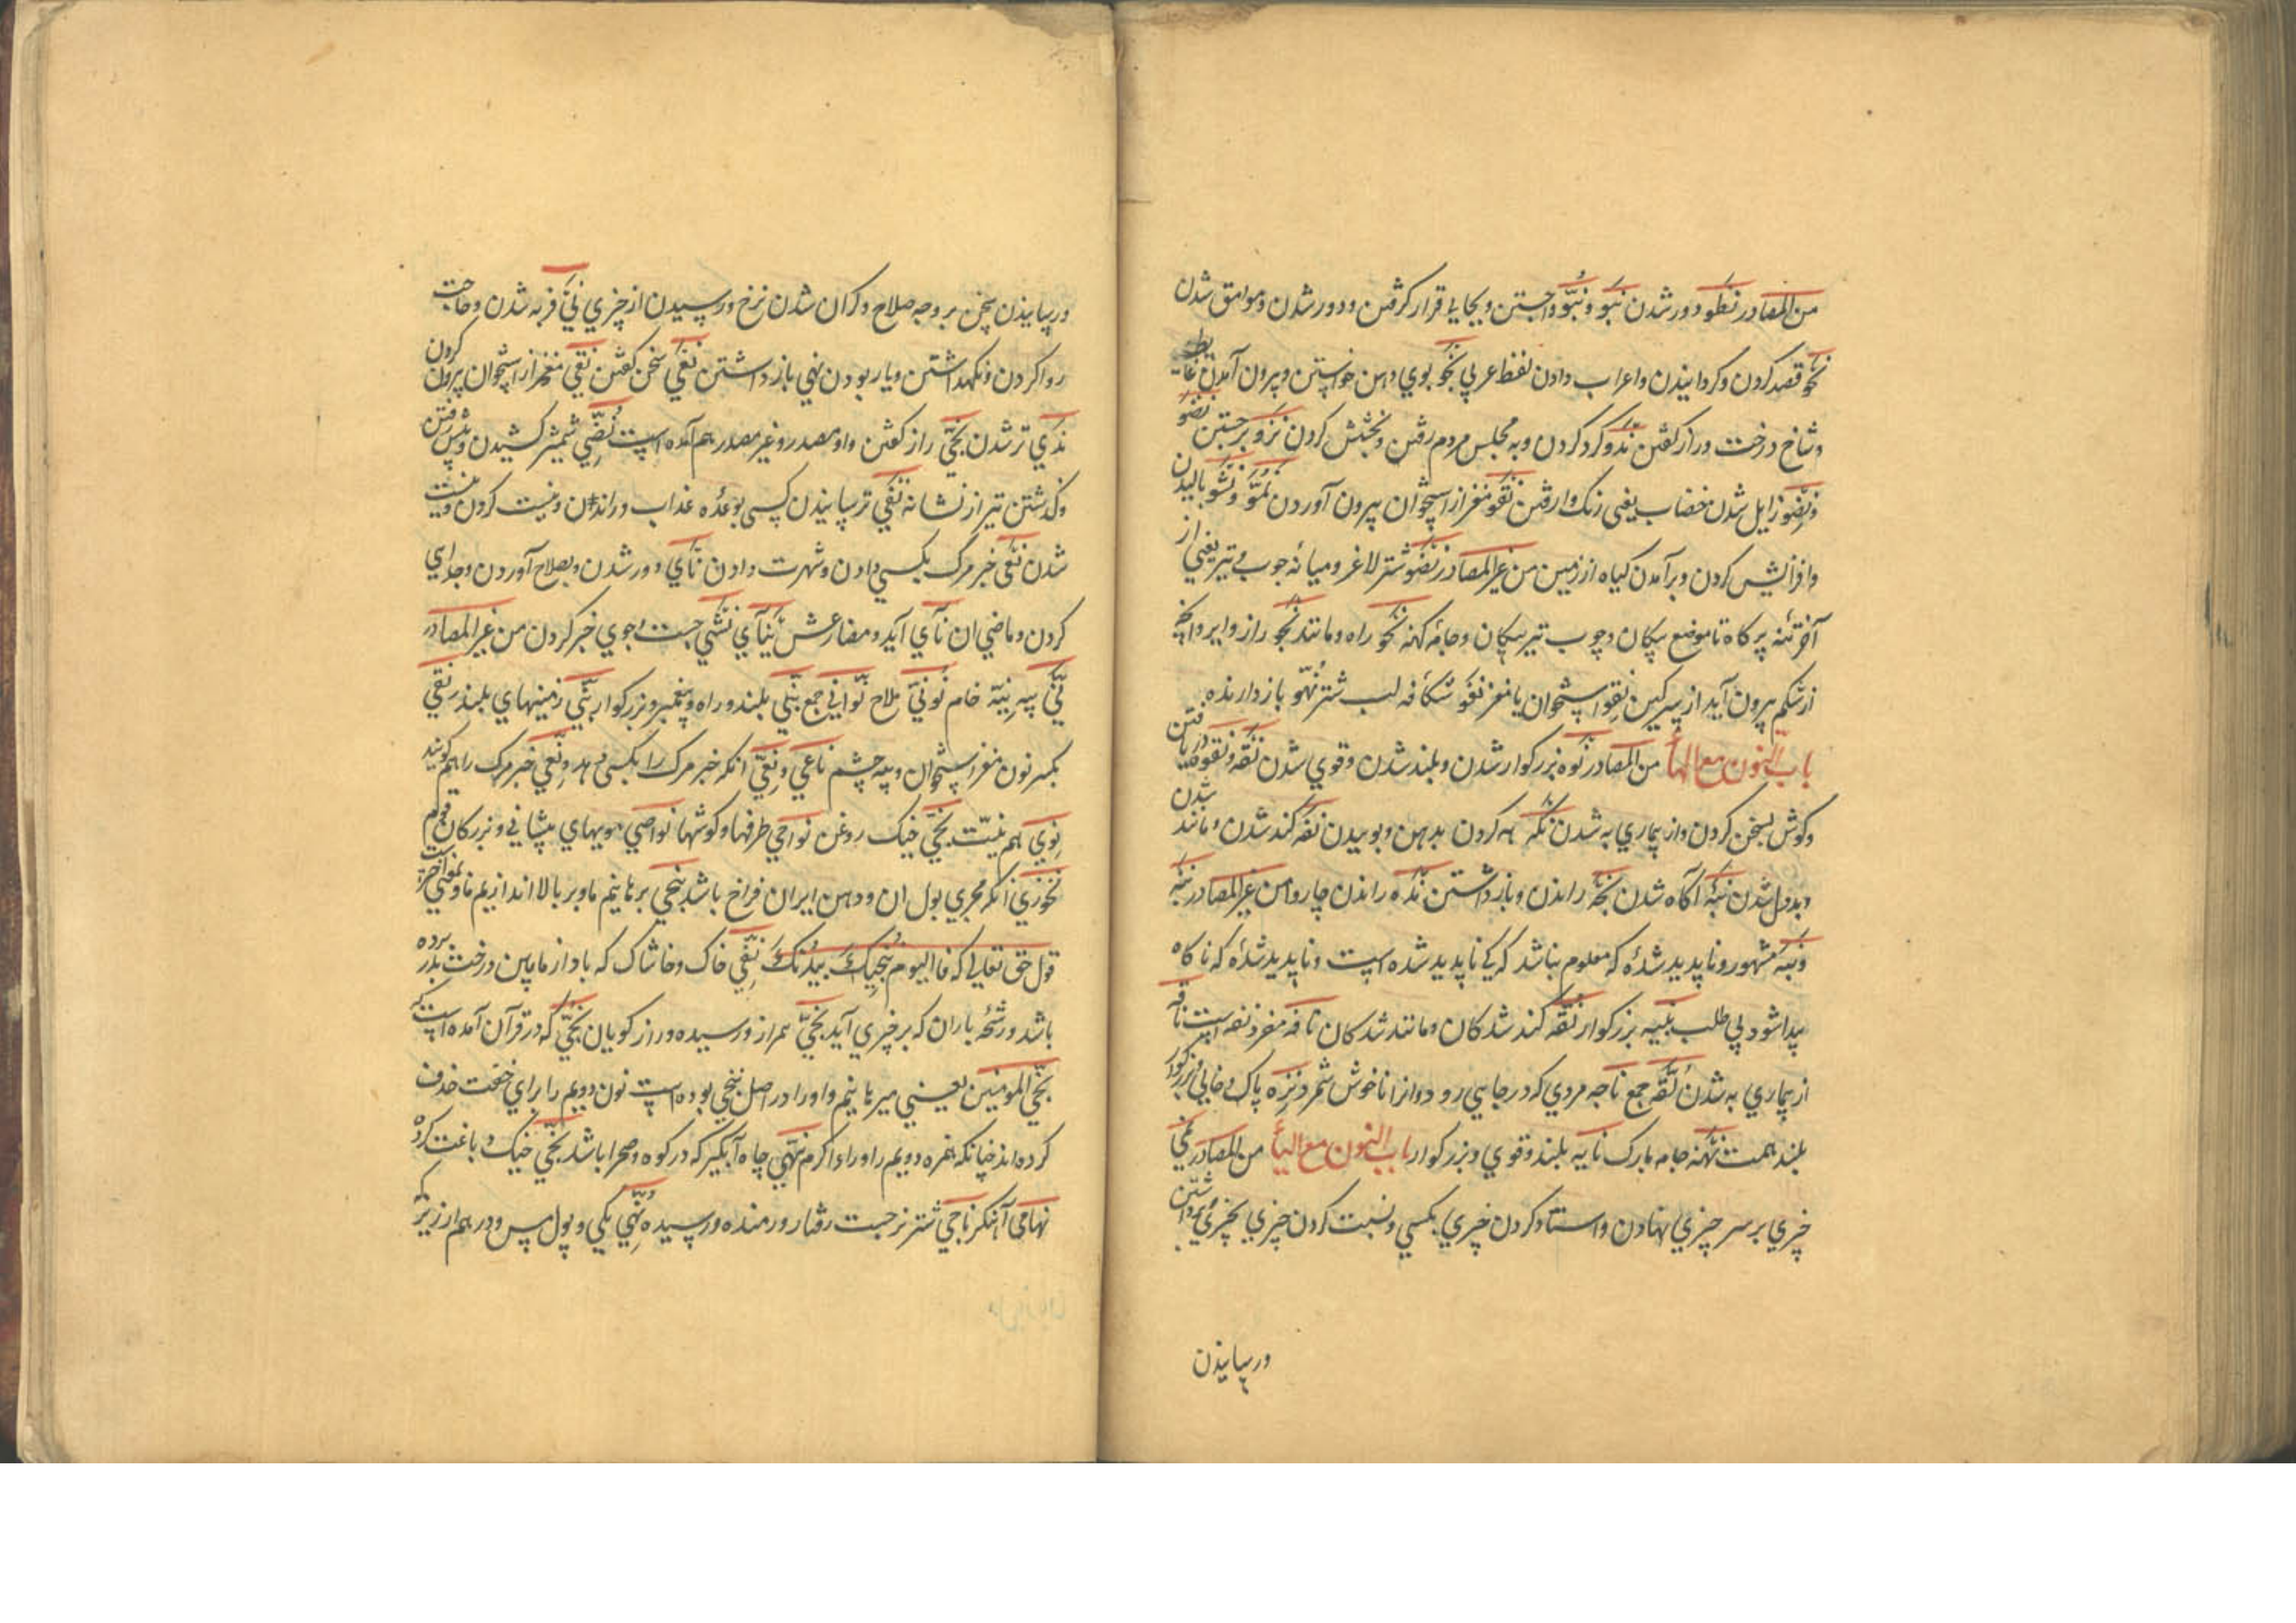 من المصادر نطو دور شدن نبو و نبو واجستن و بجایی قرار گرفتن و دور شدن و موافق شدن
نحو قصد کردن و گردانیدن و اعراب دادن لفظ عربی نجو بوی دهن خواستن و بیرون آمدن غایط
و شاخ درخت و راز گفتن ندو گرد کردن و به مجلس مردم رفتن و بخشش کردن نزو برجستن نضو
و نضو زایل شدن خضاب یعنی رنگ وا رفتن نقو مغز از استخوان بیرون آوردن نمو و نشو بالیدن
و افزایش کردن و برآمدن گیاه از زمین من غیر المصادر نضو شتر لاغر و میانه چوب تیر یعنی از
آخر تنه پر کاه تا موضع پیکان و چوب تیر بی پیکان و جامه کهنه نحو راه و مانند نجو راز و ابر و آنچه
از شکم بیرون آید از سرگین نقو استخوان با مغز نفو شکافه لب شتر نهو باز دارنده
باب النون مع الهاء من المصادر نوه بزرگوار شدن و بلند شدن و قوی شدن نقه و نقوه دریافتن
و گوش بسخن کردن و از بیماری به شدن نکه هه کردن بدهن و بوییدن نفه کند شدن و مانده شدن
و بددل شدن نبه آگاه شدن نجه راندن و باز داشتن نده راندن چاروا من غیر المصادر نبه
و نبه مشهور و ناپدید شده که معلوم نباشد که کی ناپدید شده است و ناپدید شده که ناگاه
پیدا شود بی طلب نبیه بزرگوار نفه کند شدگان و مانند شدگان نافه مفرد نفه است ناقه
از بیماری به شدن نقه جمع ناجه مردی که در جایی رود و آنرا ناخوش شمرد نزه پاک و خالی و بزرگوار
بلند همت نهنه جامه بارک نایه بلند و قوی و بزرگوار باب النون مع الیاء من المصادر نمی
چیزی بر سر چیزی نهادن و استاد کردن چیزی بکسی و نسبت کردن چیزی بچیزی و برداشتن
ورسانیدن
ورسانیدن سخن بر وجه صلاح و گران شدن نرخ و رسیدن از چیزی نی فربه شدن و حاجت
روا کردن و نگهداشتن و یار بودن نهی باز داشتن نغی سخن گفتن نقی مغز از استخوان بیرون کردن
ندی تر شدن نجی راز گفتن و او مصدر و غیر مصدر هم آمده است نضی شمشیر کشیدن و پیش رفتن
و گذشتن تیر از نشانه نفی ترسانیدن کسی بوعده عذاب و راندن و نیست کردن و نیست
شدن نعی خبر مرگ بکسی دادن و شهرت دادن نأی دور شدن و بصلاح آوردن و جدایی
کردن و ماضی ان نأی آید و مضارعش ینأی نشی جست و جوی خبر کردن من غیر المصادر
نی پیه نیة خام نوتی ملاح نواتی جمع نبی بلند و راه و پیغمبر و بزرگوار نبی زمینهای بلند نقی
بکسر نون مغز استخوان و پیه چشم ناعی و نعی آنکه خبر مرگ را بکسی دهد و نعی خبر مرگ را هم گویند
نوی هم نیت نحی خیک روغن نواحی طرفها و گوشها نواصی مویهای پیشانی و بزرگان قوم
نخوری آنکه مجری بول ان و دهن ایران فراخ باشد ننجی برهانیم ما و بر بالا اندازیم ما و بمعنی آخر است
قول حق تعالی که فالیوم ننجیک ببدنک نفی خاک و خاشاک که باد از مابین درخت بدر برده
باشد و رشحه باران که بر چیزی آید نجی همراز و رسیده و رازگویان نجی که در قرآن آمده است که
نجی المومنین یعنی میرهانیم و او را در اصل ننجی بوده است نون دویم را برای خفت حذف
کرده اند چنانکه همزه دویم را و راء اکرم نهی چاه آبگیر که در کوه و صحرا باشد نحی خیک و باغت کرده
نهامی آهنگر ناجی شتر نر جست رفتار و رمنده و رسیده نمی یکی و پول مس و درهم ارزیز که